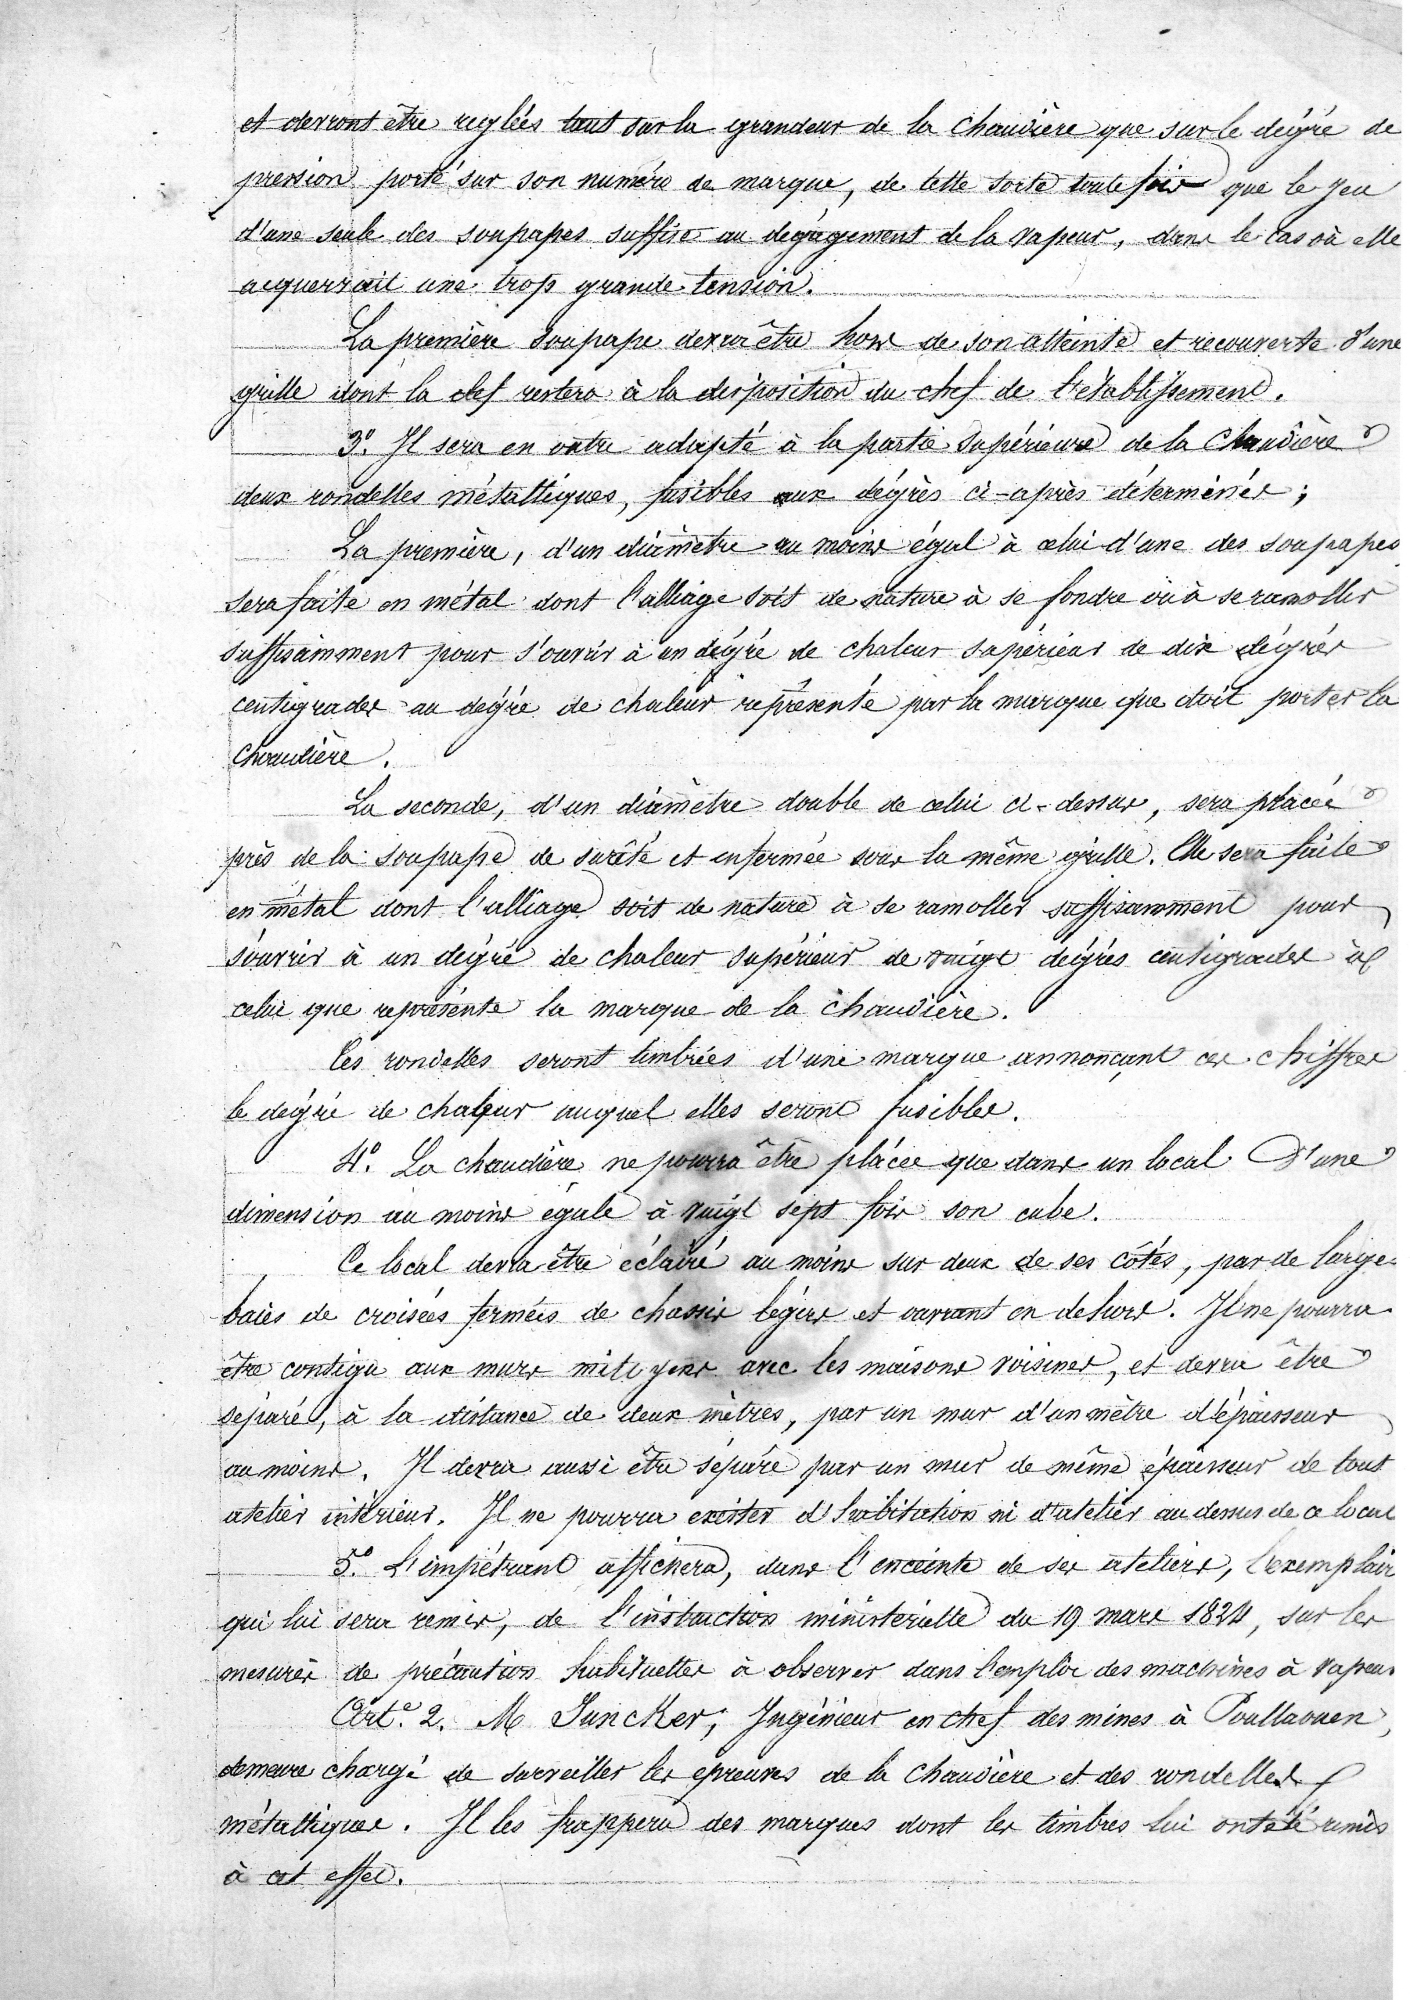 et devront être reglées tant sur la grandeur de la chaudière que sur le dégré de
pression porté sur son numéro de marque, de telle sorte toutefois que le jeu
d'une seule des soupapes suffise au dégagement de la vapeur, dans le cas où elle
acquerrait une trop grande tension.
La première soupape devra être hors de son atteinte et recouverte d'une
grille dont la clef restera à la disposition du chef de l'établissement.
3º. Il sera en outre adapté à la partie supérieure de la chaudière
deux rondelles métalliques, fusibles aux dégrès ci-après déterminés ;
La première, d'un diamètre au moins égal à celui d'une des soupapes
sera faite en métal dont l'alliage soit de nature à se fondre ou à se ramollir
suffisamment pour s'ouvrir à un dégré de chaleur supérieur de dix dégrés
centigrades au dégré de chaleur représenté par la marque que doit porter la
chaudière.
La seconde, d'un diamètre double de celui ci-dessus, sera placée
près de la soupape de sureté et enfermée sous la même grille. Elle sera faite
en métal dont l'alliage soit de nature à se ramollir suffisamment pour
s'ouvrir à un dégré de chaleur supérieur de vingt dégrés centigrades à
celui que représente la marque de la chaudière.
Ces rondelles seront timbrées d'une marque annonçant en chiffres
le dégré de chaleur auquel elles seront fusibles.
4º. La chaudière ne pourra être placée que dans un local d'une
dimension au moins égale à vingt sept fois son cube.
Ce local devra être éclairé au moins sur deux de ses côtés, par de larges
baies de croisées fermées de chassis légers et ouvrant en dehors. Il ne pourra
être contigu aux murs mitoyens avec les maisons voisines, et devra être
séparé, à la distance de deux mètres, par un mur d'un mètre d'épaisseur
au moins. Il devra aussi être séparé par un mur de même épaisseur de tout
atelier intérieur. Il ne pourra exister d'habitation ni d'atelier au dessus de ce local
5º. L'impétrant affichera, dans l'enceinte de ses ateliers, l'exemplaire
qui lui sera remis, de l'instruction ministérielle du 19 mars 1824, sur les
mesures de précaution habituelles à observer dans l'emploi des machines à vapeur
Art.e 2. M Juncker, Ingénieur en chef des mines à Poullaouen,
demeure chargé de surveiller les epreuves de la chaudière et des rondelles
métalliques. Il les frappera des marques dont les timbres lui ont été remis
à cet effet.